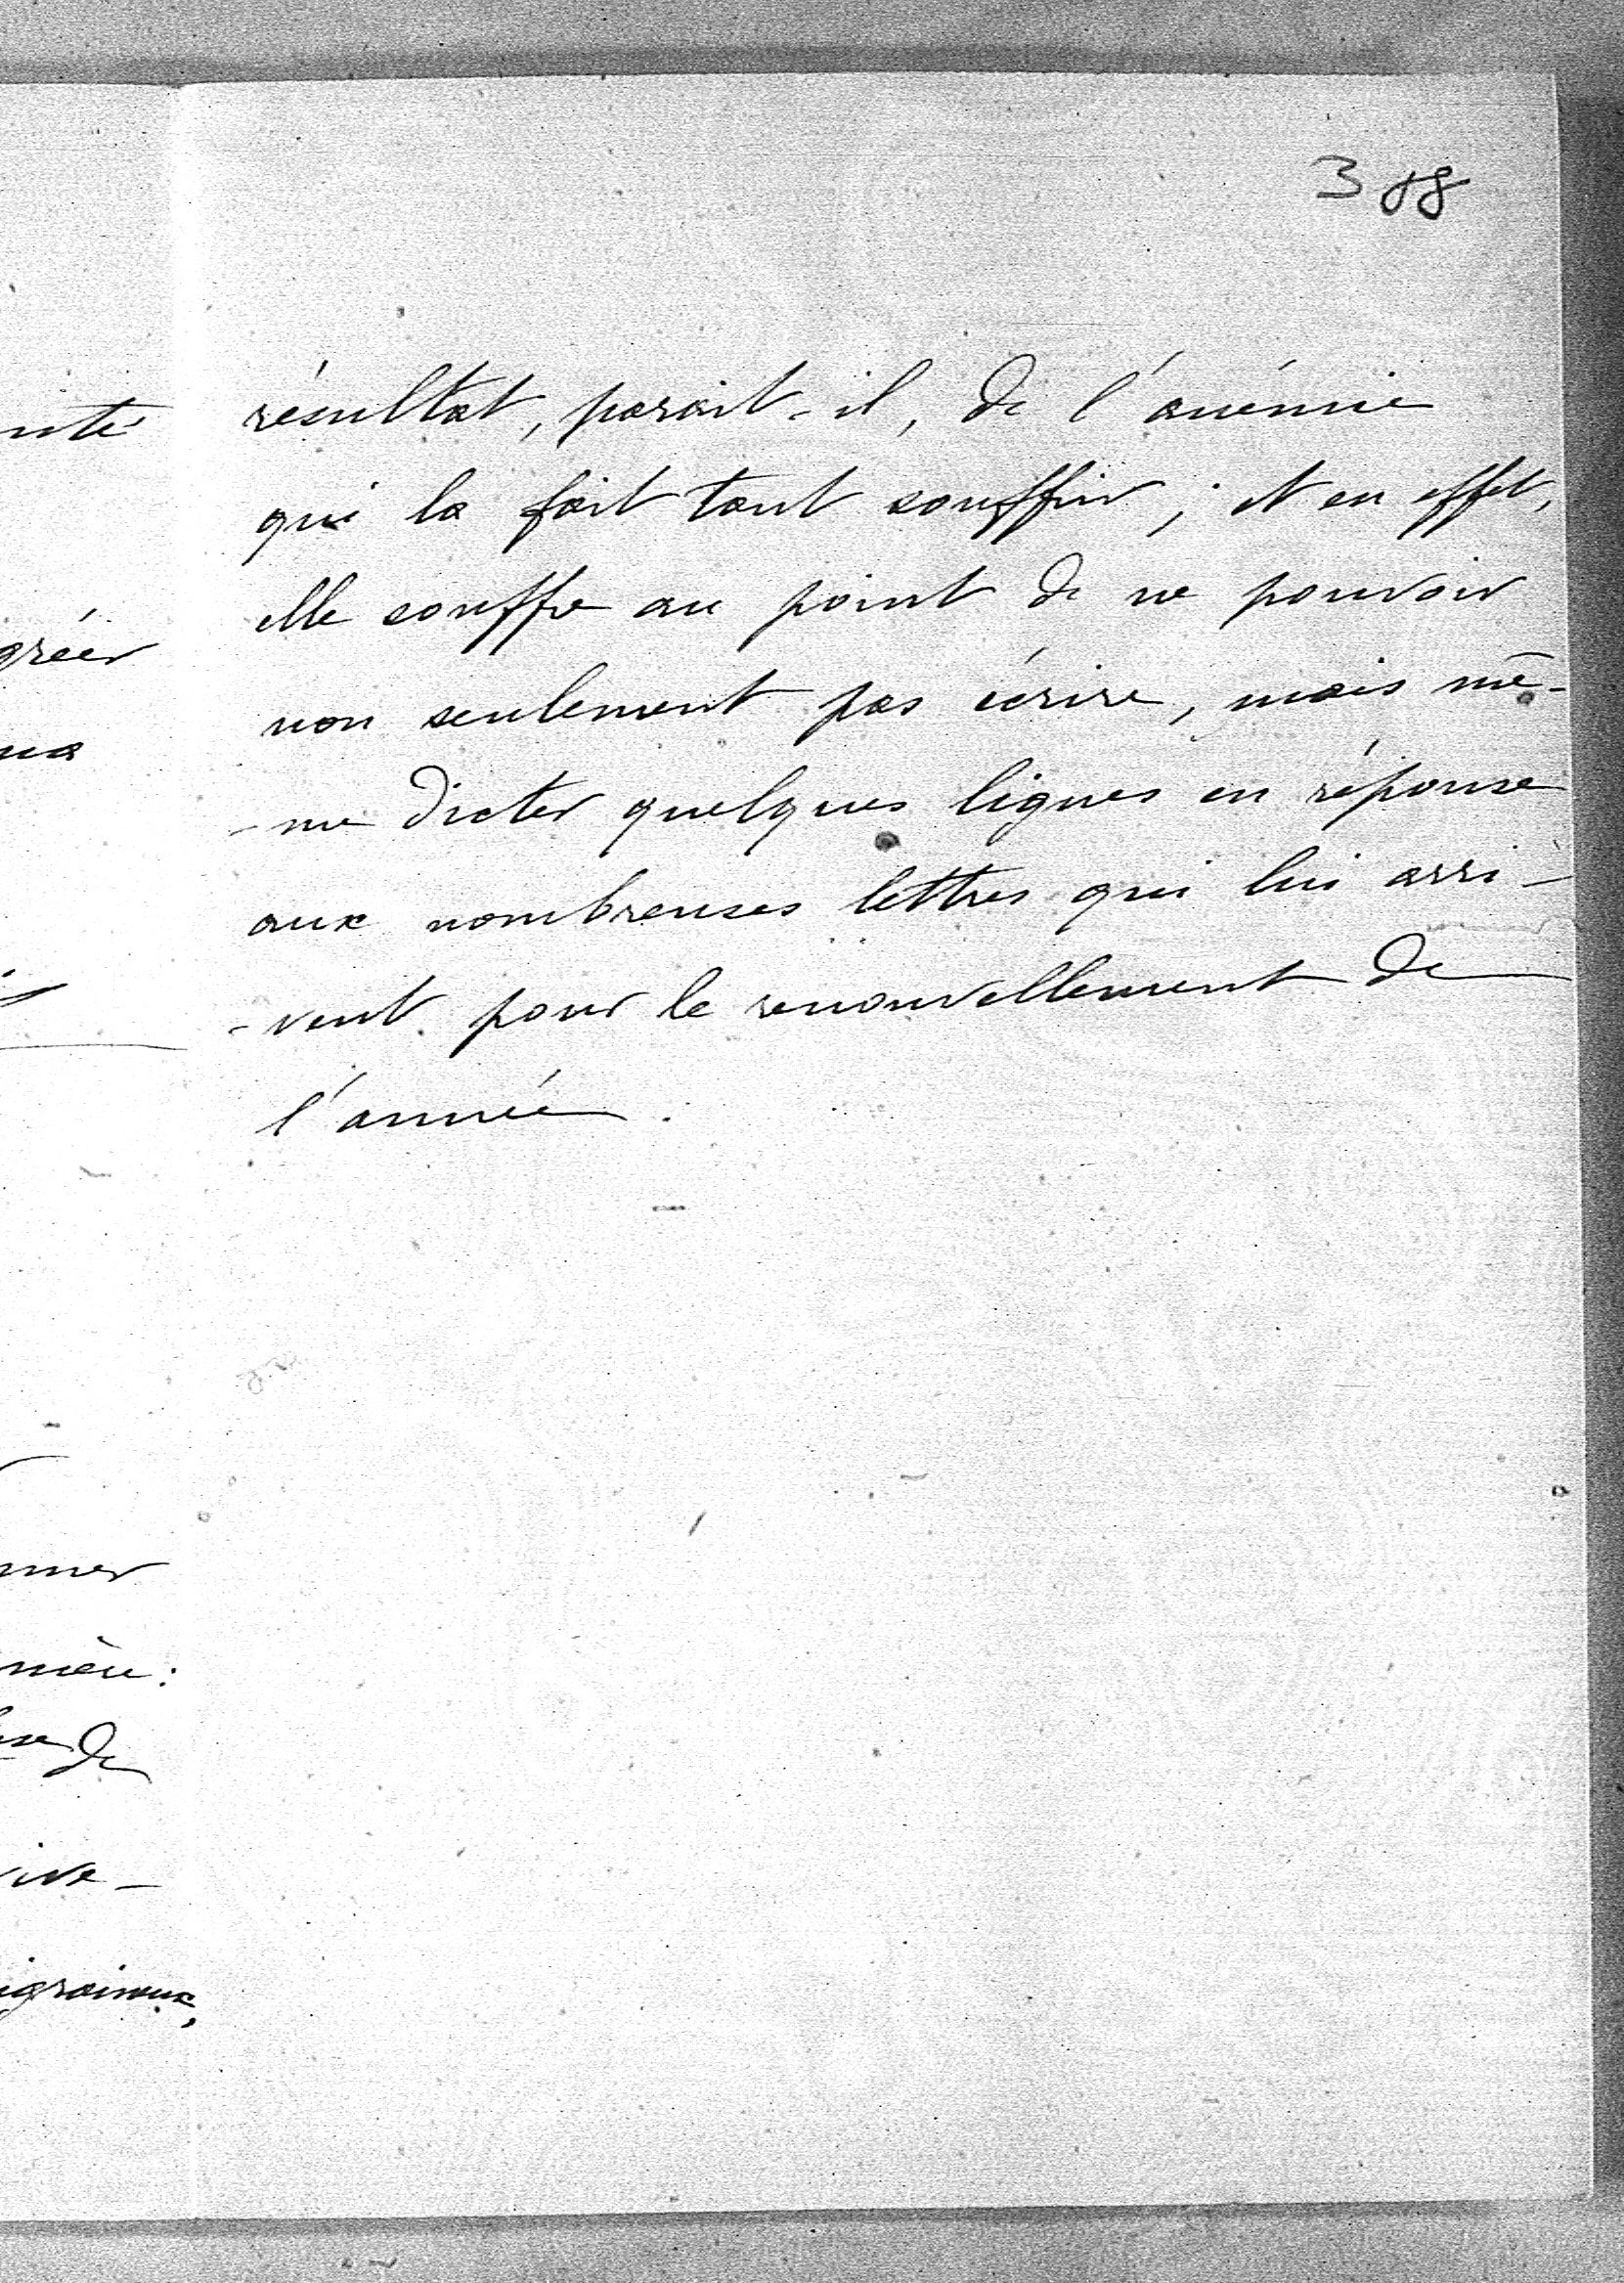 388
résultat, parait-il, de l'anémie
qui la fait tant souffrir ; et en effet,
elle souffre au point de ne pouvoir
non seulement pas écrire, mais mê-
-me dicter quelques lignes en réponse
aux nombreuses lettres qui lui arri-
-vent pour le renouvellement de
l'année.